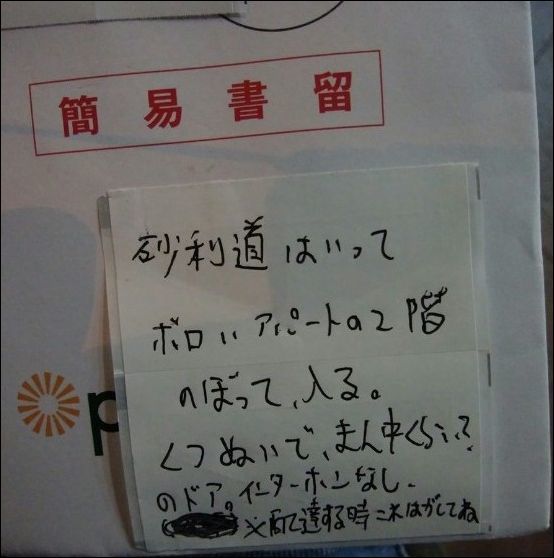 簡易書留
砂利道はいって
ボロいアパートの2階
のぼって、入る。
くつぬいで、まん中くらい?
のドア。インターホンなし.
※配達する時これはがしてね